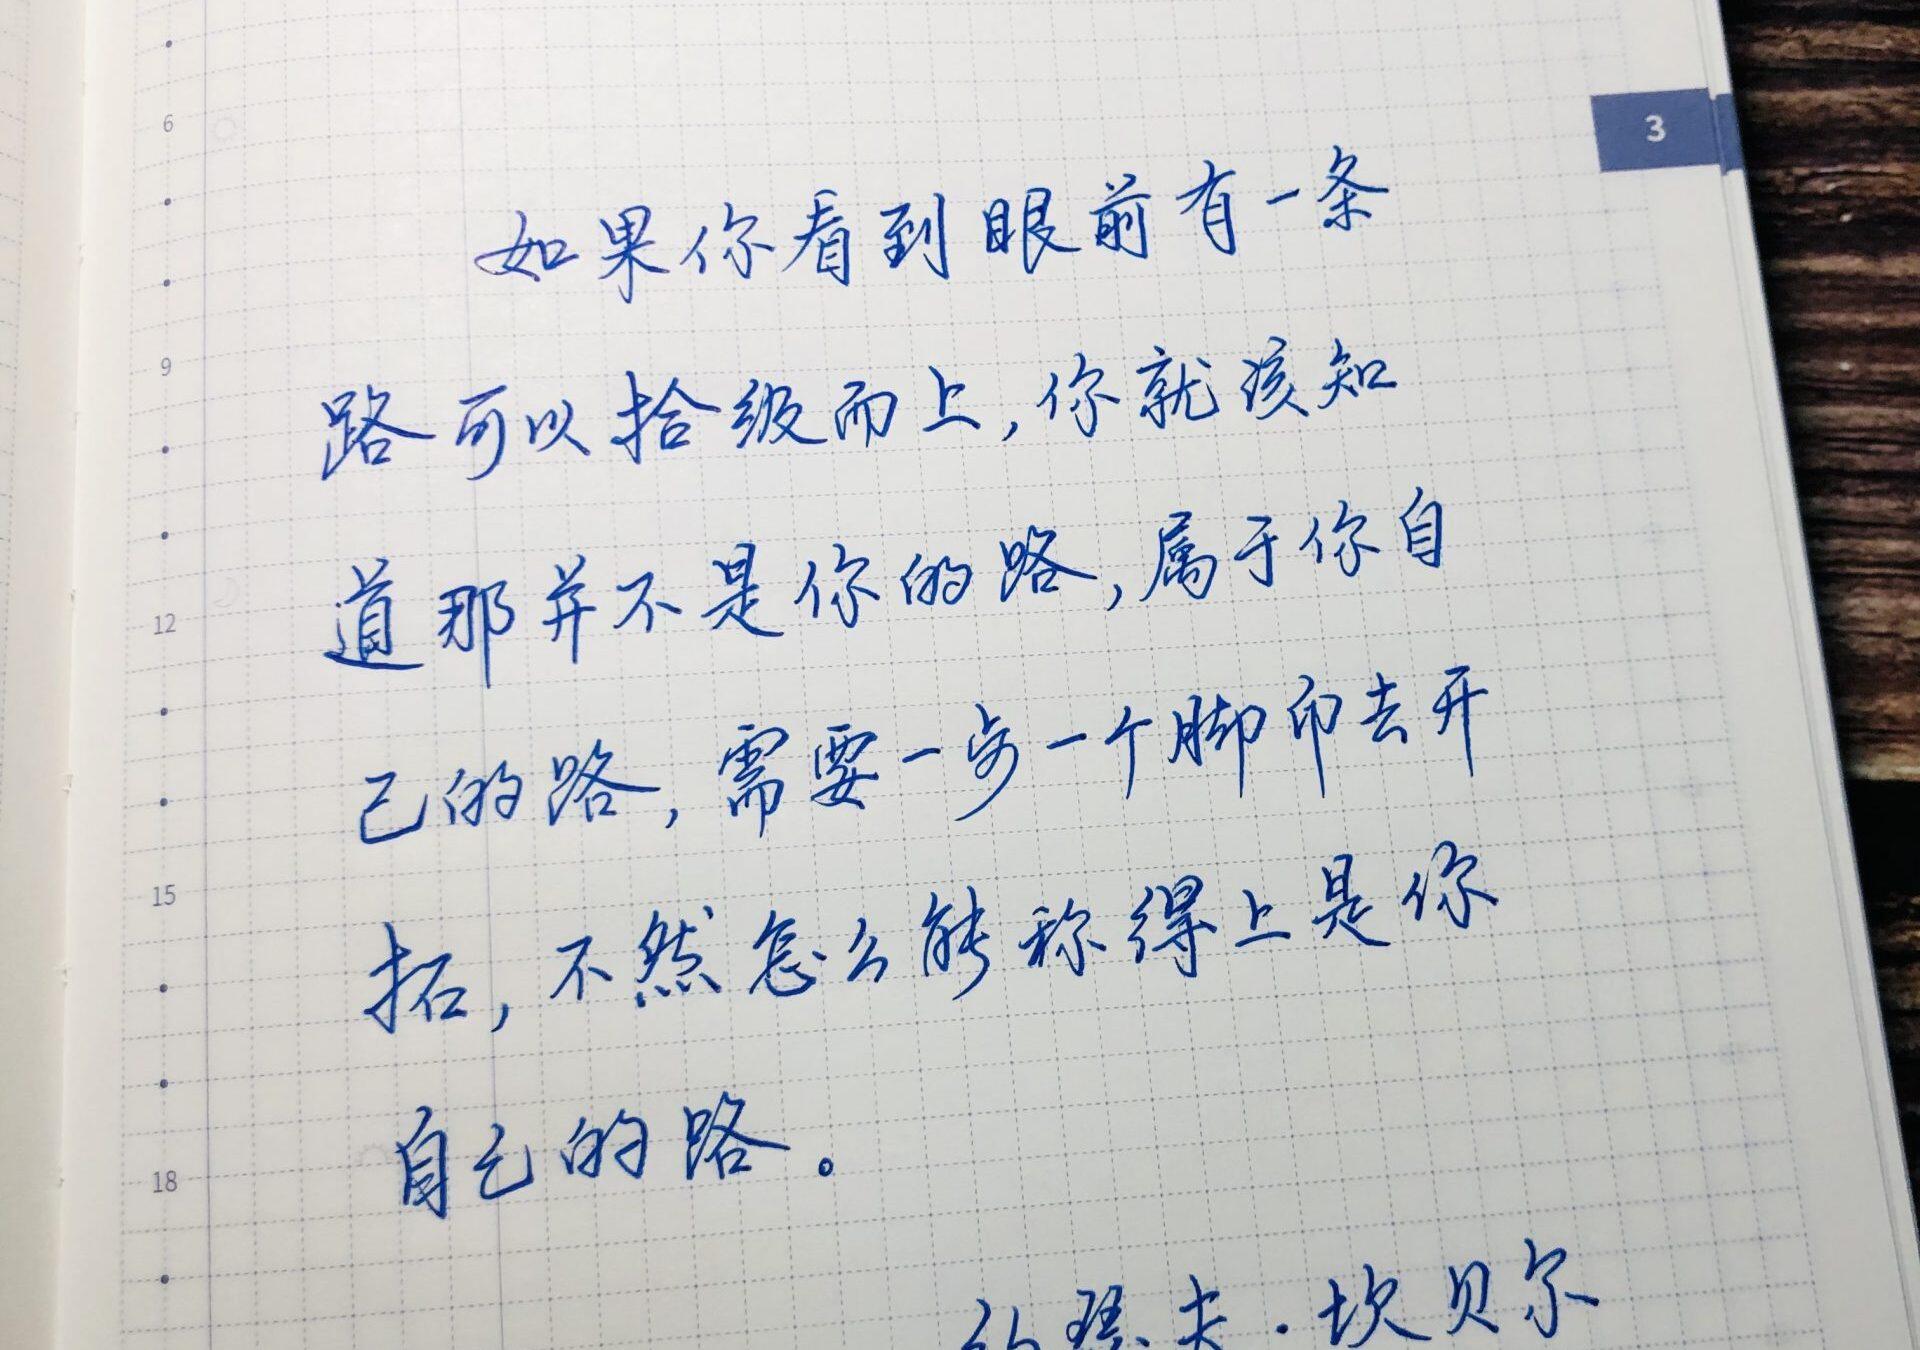 3
6
如果你看到眼前有一条
9
路可以拾级而上,你就该知
12
道那并不是你的路,属于你自
己的路,需要一步一个脚印去开
15
拓,不然怎么能称得上是你
18
自己的路。
约瑟夫·坎贝尔